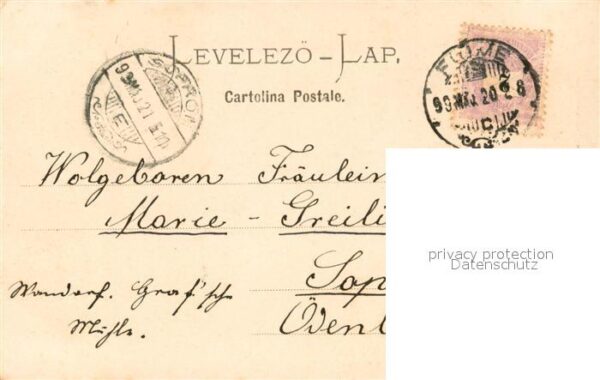 LEVELEZŐ - LAP.
Cartolina Postale.
SOPRON
FIUME
Wolgeboren Fräulein
Marie - Greili
Sop
Ödenb
Wandorf. Graf'sche
Mühle.
privacy protection
Datenschutz